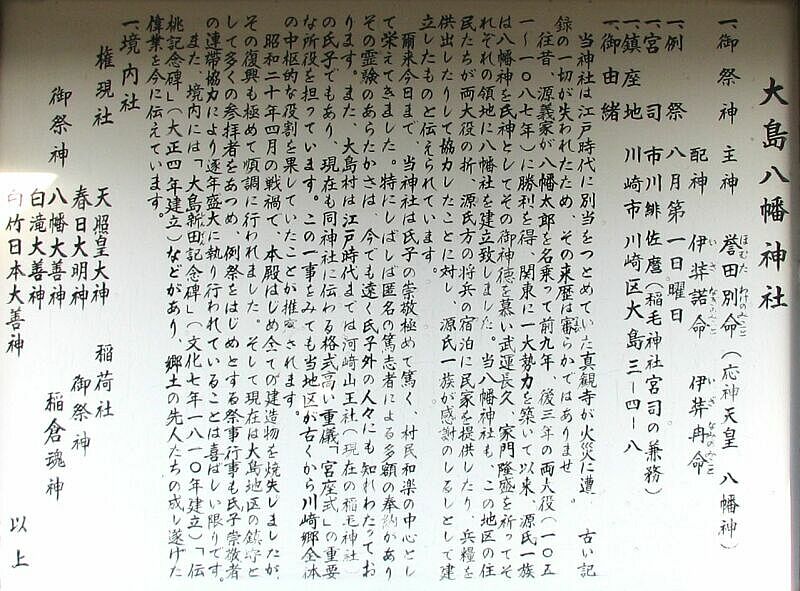 大島八幡神社
一、御祭神　主神　誉田別命（応神天皇　八幡神）
ほむたわけのみこと
配神　伊弉諾命　伊弉冉命
いざなぎのみこと　いざなみのみこと
一、例祭　八月第一日曜日
一、宮司　市川緋佐麿（稲毛神社宮司の兼務）
一、鎮座地　川崎市川崎区大島三ー四ー八
一、御由緒
当神社は江戸時代に別当をつとめていた真観寺が火災に遭　古い記
録の一切が失われたため、その来歴は審らかではありませ　。
往昔、源義家が八幡太郎を名乗って前九年　後三年の両大役（一〇五
一〜一〇八七年）に勝利を得、関東に一大勢力を築いて以来　源氏一族
は八幡神を氏神としてその御神徳を慕い武運長久、家門隆盛を祈ってそ
れぞれの領地に八幡社を建立致しました。当八幡神社も、この地区の住
民たちが両大役の折、源氏方の将兵の宿泊に民家を提供したり、兵糧を
供出したりして協力したことに対し、源氏一族が感謝のしるしとして建
立したものと伝えられています。
爾来今日まで、当神社は氏子の崇敬極めて篤く、村民和楽の中心とし
て栄えてきました。特にしばしば匿名の篤志者による多額の奉納があり
その霊験のあらたかさは、今でも遠く氏子外の人々にも知れわたってお
ります。また、大島村は江戸時代までは河崎山王社（現在の稲毛神社）
の氏子でもあり、現在も同神社に伝わる格式高い重儀「宮座式」の重要
な所役を担っています。この一事をみても当地区が古くから川崎郷全体
の中枢的な役割を果していたことが推　されます。
昭和二十年四月の戦禍で、本殿はじめ全ての建造物を焼失しましたが、
その復興も極めて順調に行われました。そして現在は大島地区の鎮守と
して多くの参拝者をあつめ、例祭をはじめとする祭事行事も氏子崇敬者
の連帯協力により逐年盛大に執り行われていることは喜ばしい限りです。
また、境内には「大島新田記念碑」（文化七年一八一〇年建立）「伝
桃記念碑」（大正四年建立）などがあり、郷土の先人たちの成し遂げた
偉業を今に伝えています。
一、境内社
権現社　天照皇大神　稲荷社
春日大明神　御祭神
御祭神　八幡大善神　稲倉魂神
白滝大善神
白竹日本大善神　以上